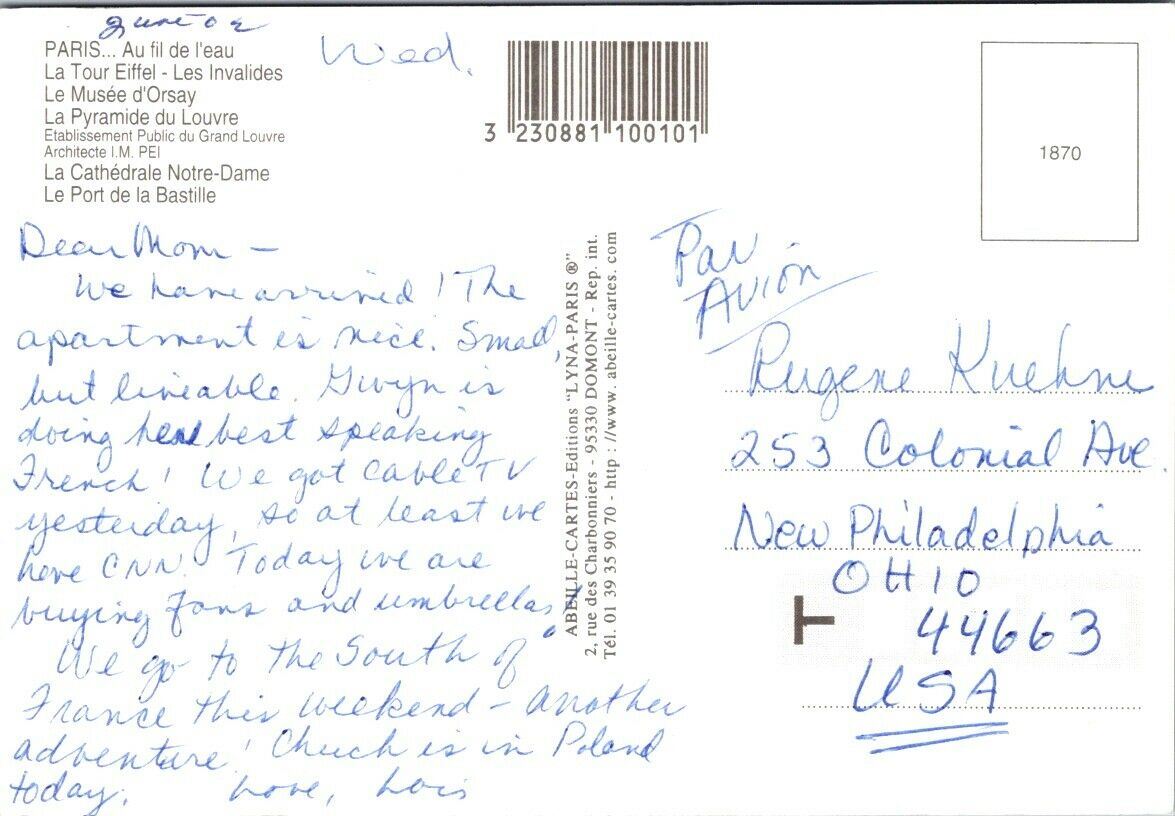 June 02
PARIS... Au fil de l'eau
La Tour Eiffel - Les Invalides
Le Musée d'Orsay
La Pyramide du Louvre
Etablissement Public du Grand Louvre
Architecte I.M. PEI
La Cathédrale Notre-Dame
Le Port de la Bastille
Wed.
3 230881 100101
1870
Dear Mom —
We have arrived! The
apartment is nice. Small,
but liveable. Gwyn is
doing her best speaking
French! We got cable TV
yesterday, so at least we
have CNN. Today we are
buying fans and umbrellas!
We go to the South of
France this weekend – another
adventure! Chuck is in Poland
today. Love, Lois
ABEILLE-CARTES-Editions "LYNA-PARIS ®"
2, rue des Charbonniers - 95330 DOMONT - Rep. int.
Tél. 01 39 35 90 70 - http : //www. abeille-cartes. com
Par
Avion
Eugene Kuehne
253 Colonial Ave.
New Philadelphia
OHIO
44663
USA